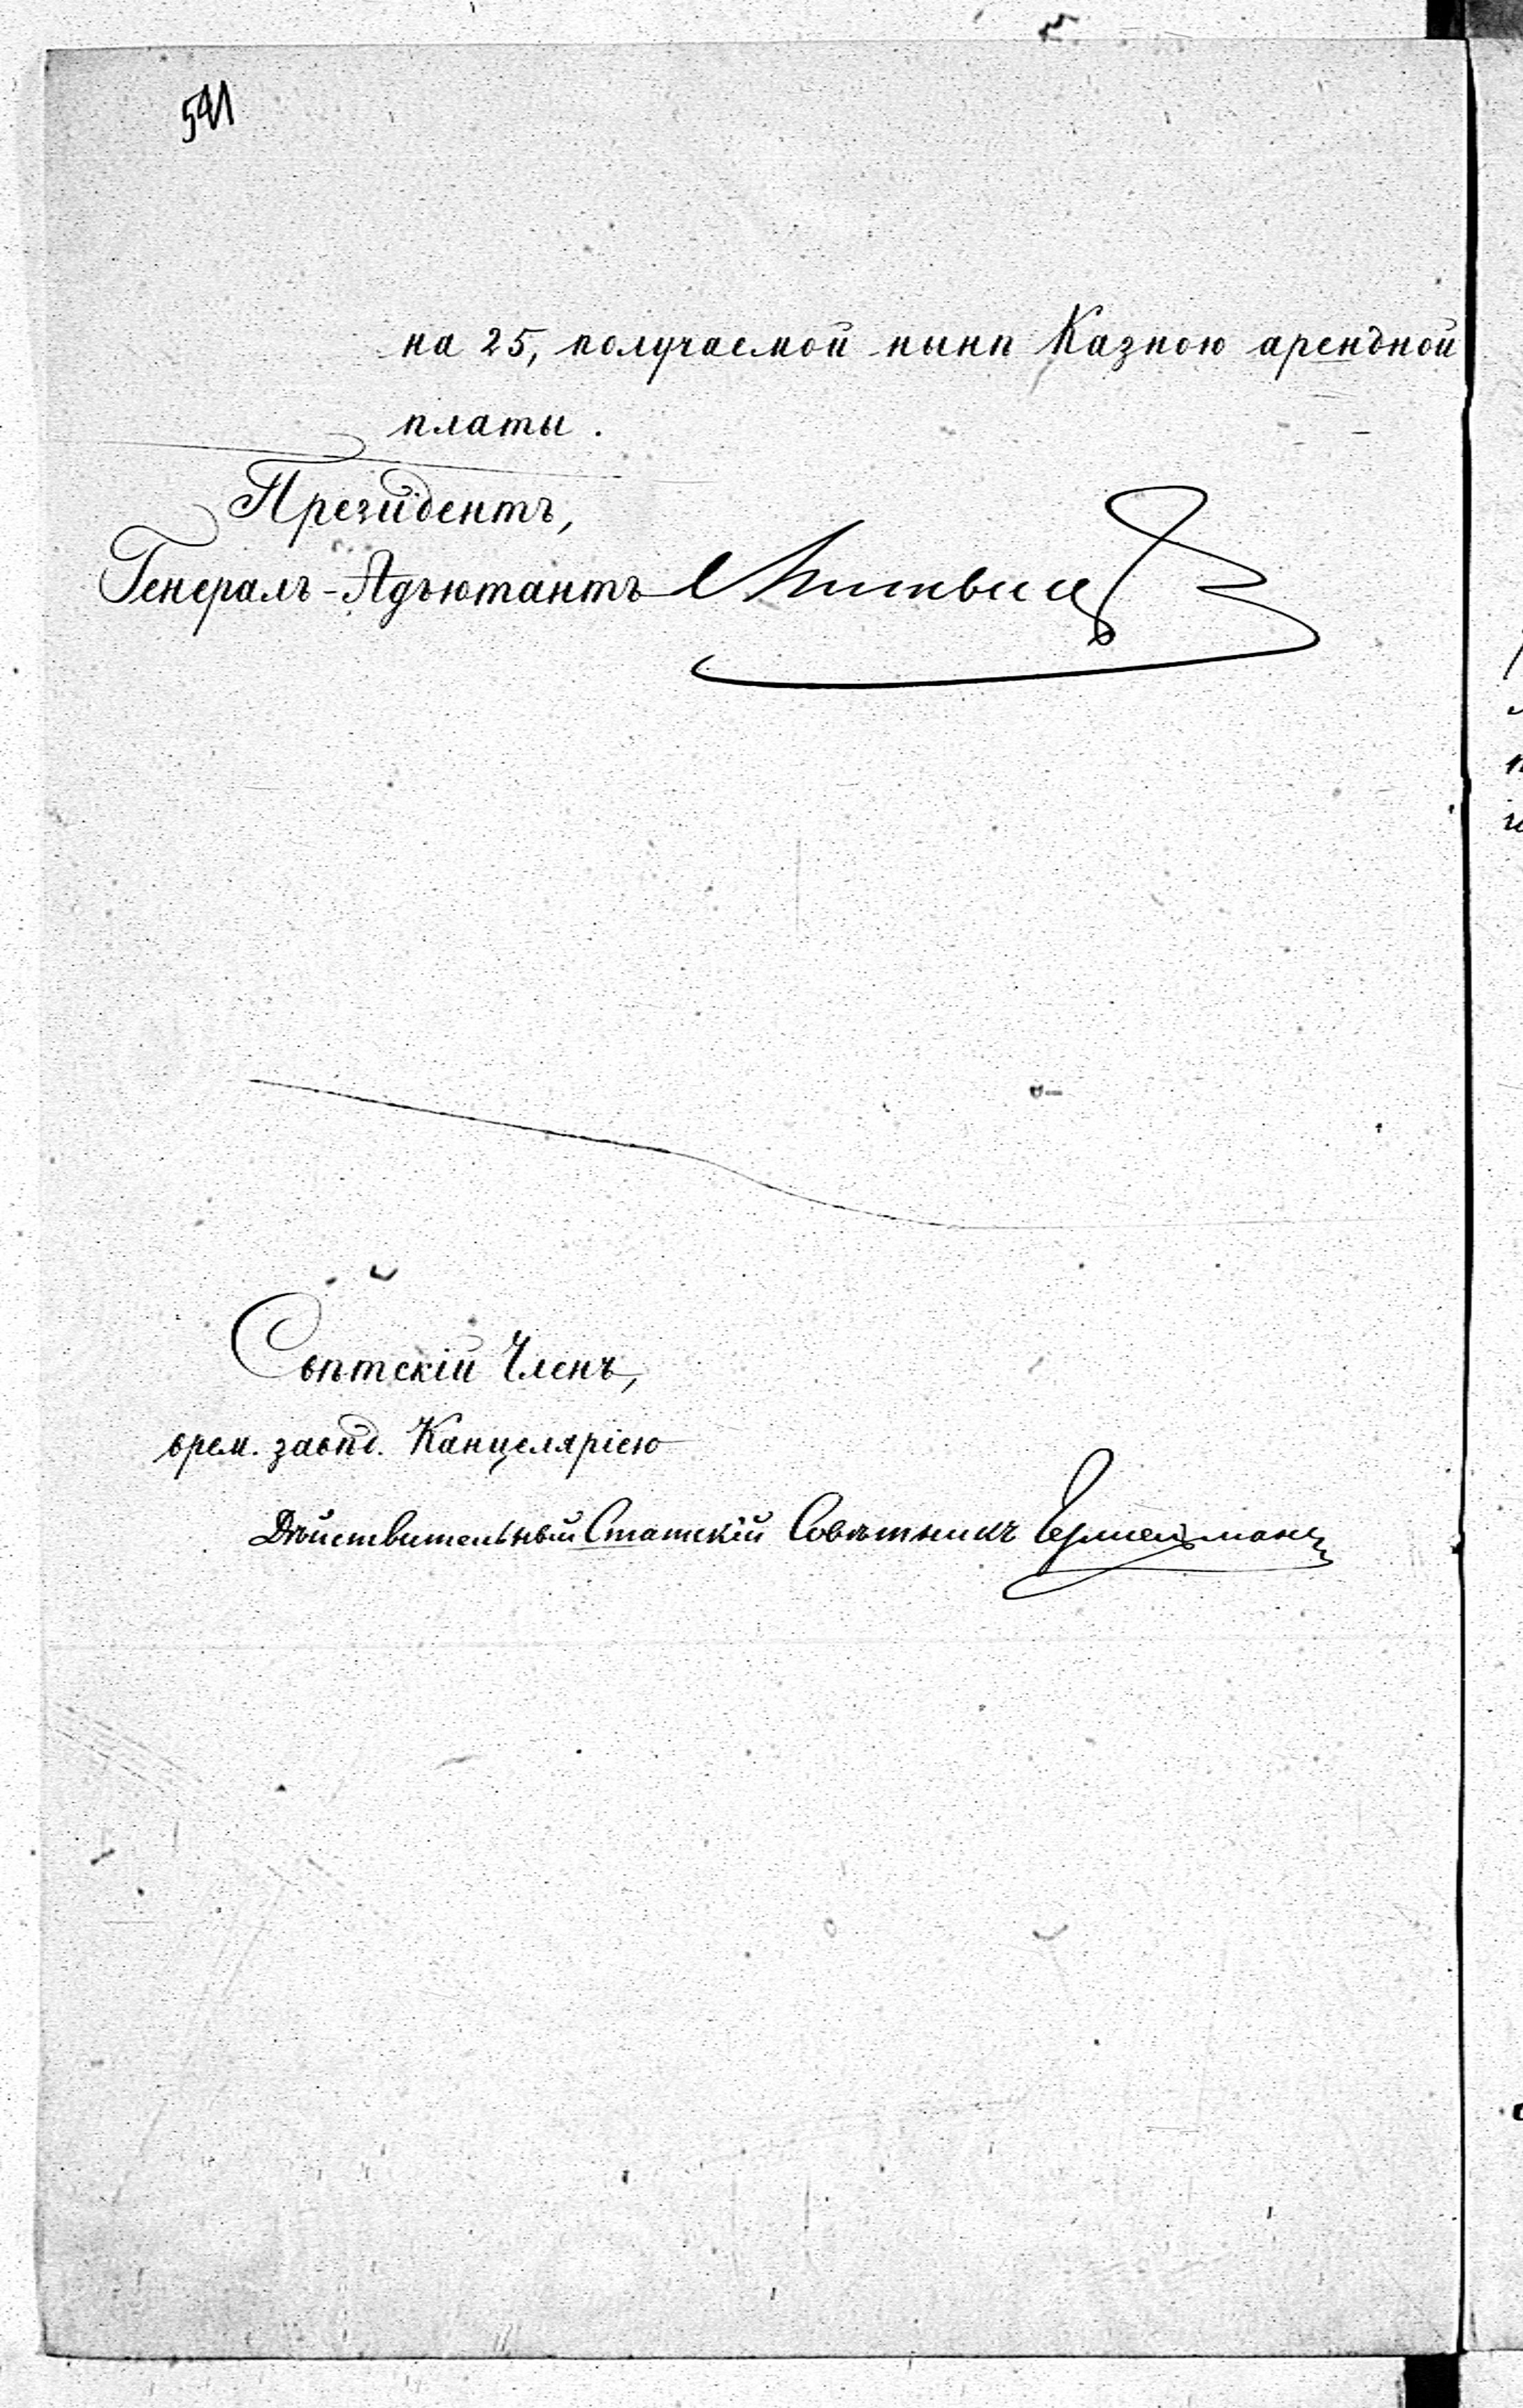 541
на 25, получаемой нынѣ Казною арендной
платы.
Президентъ,
Генералъ-Адъютантъ Литвин
Свѣтскій Членъ,
врем. завѣд. Канцеляріею
Дѣйствительный Статскій Совѣтникъ